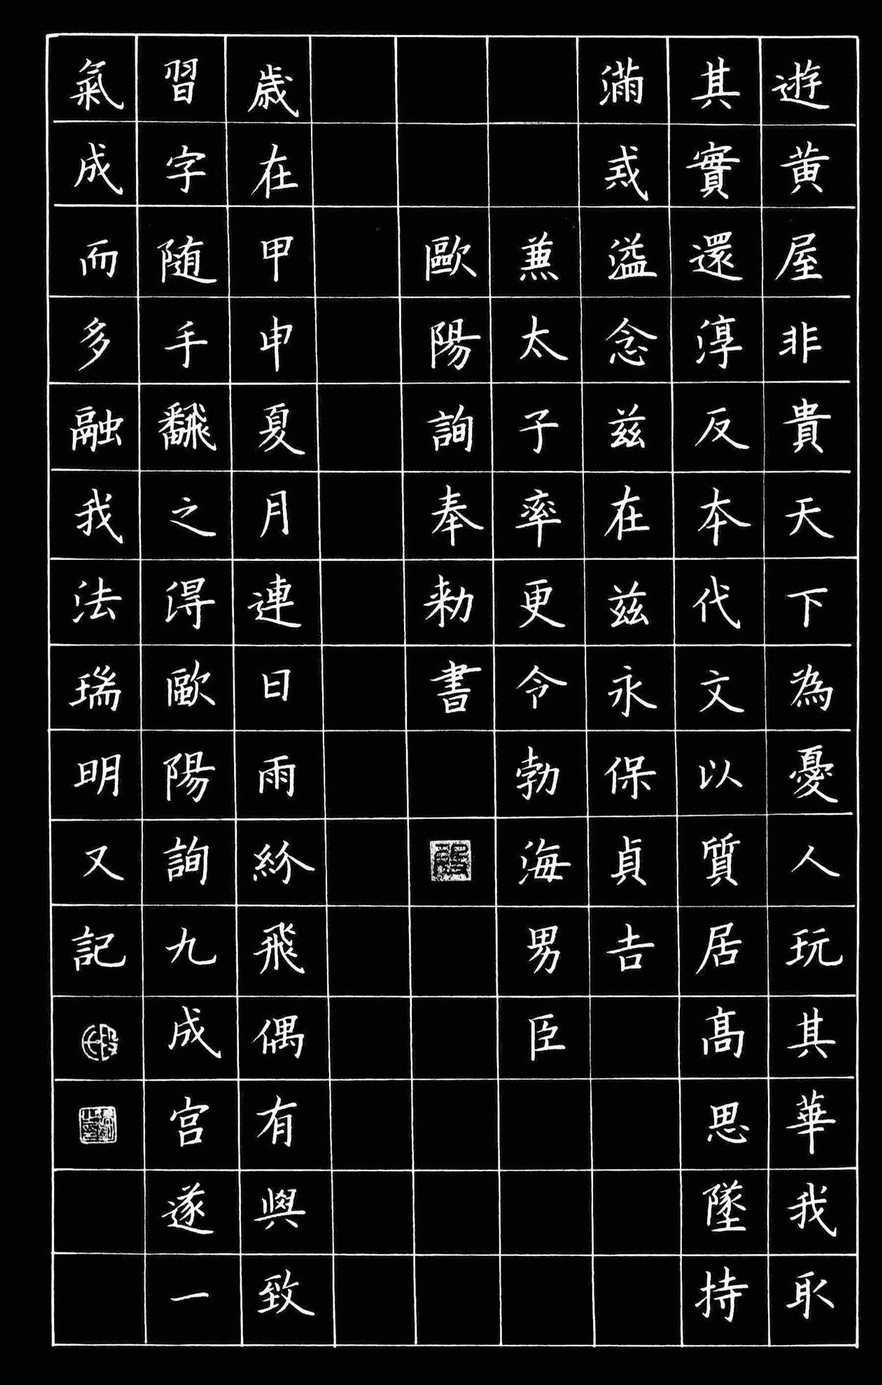 遊黄屋非貴天下為憂人玩其華我取
其實還淳反本代文以質居髙思墜持
滿戒溢念兹在兹永保貞吉
兼太子率更令勃海男臣
歐陽詢奉勑書
歳在甲申夏月連日雨紛飛偶有興致
習字随手飜之得歐陽詢九成宫遂一
氣成而多融我法瑞明又記